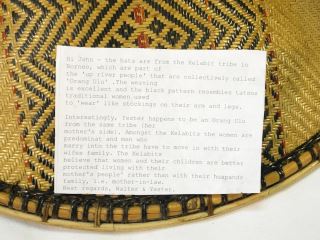 Hi John - the hats are from the Kelabit tribe in
Borneo, which are part of
the 'up river people' that are collectively called
'Orang Ulu' .The weaving
is excellent and the black pattern resembles tatoos
traditional women used
to 'wear' like stockings on their arm and legs.

Interestingly, Yester happens to be an Orang Ulu
from the same tribe (her
mother's side). Amongst the Kelabits the women are
predominant and men who
marry into the tribe have to move in with their
wifes family. The Kelabits
believe that women and their children are better
protected living with their
mother's people' rather than with their husbands
family, i.e. mother-in-law.
Best regards, Walter & Yester.